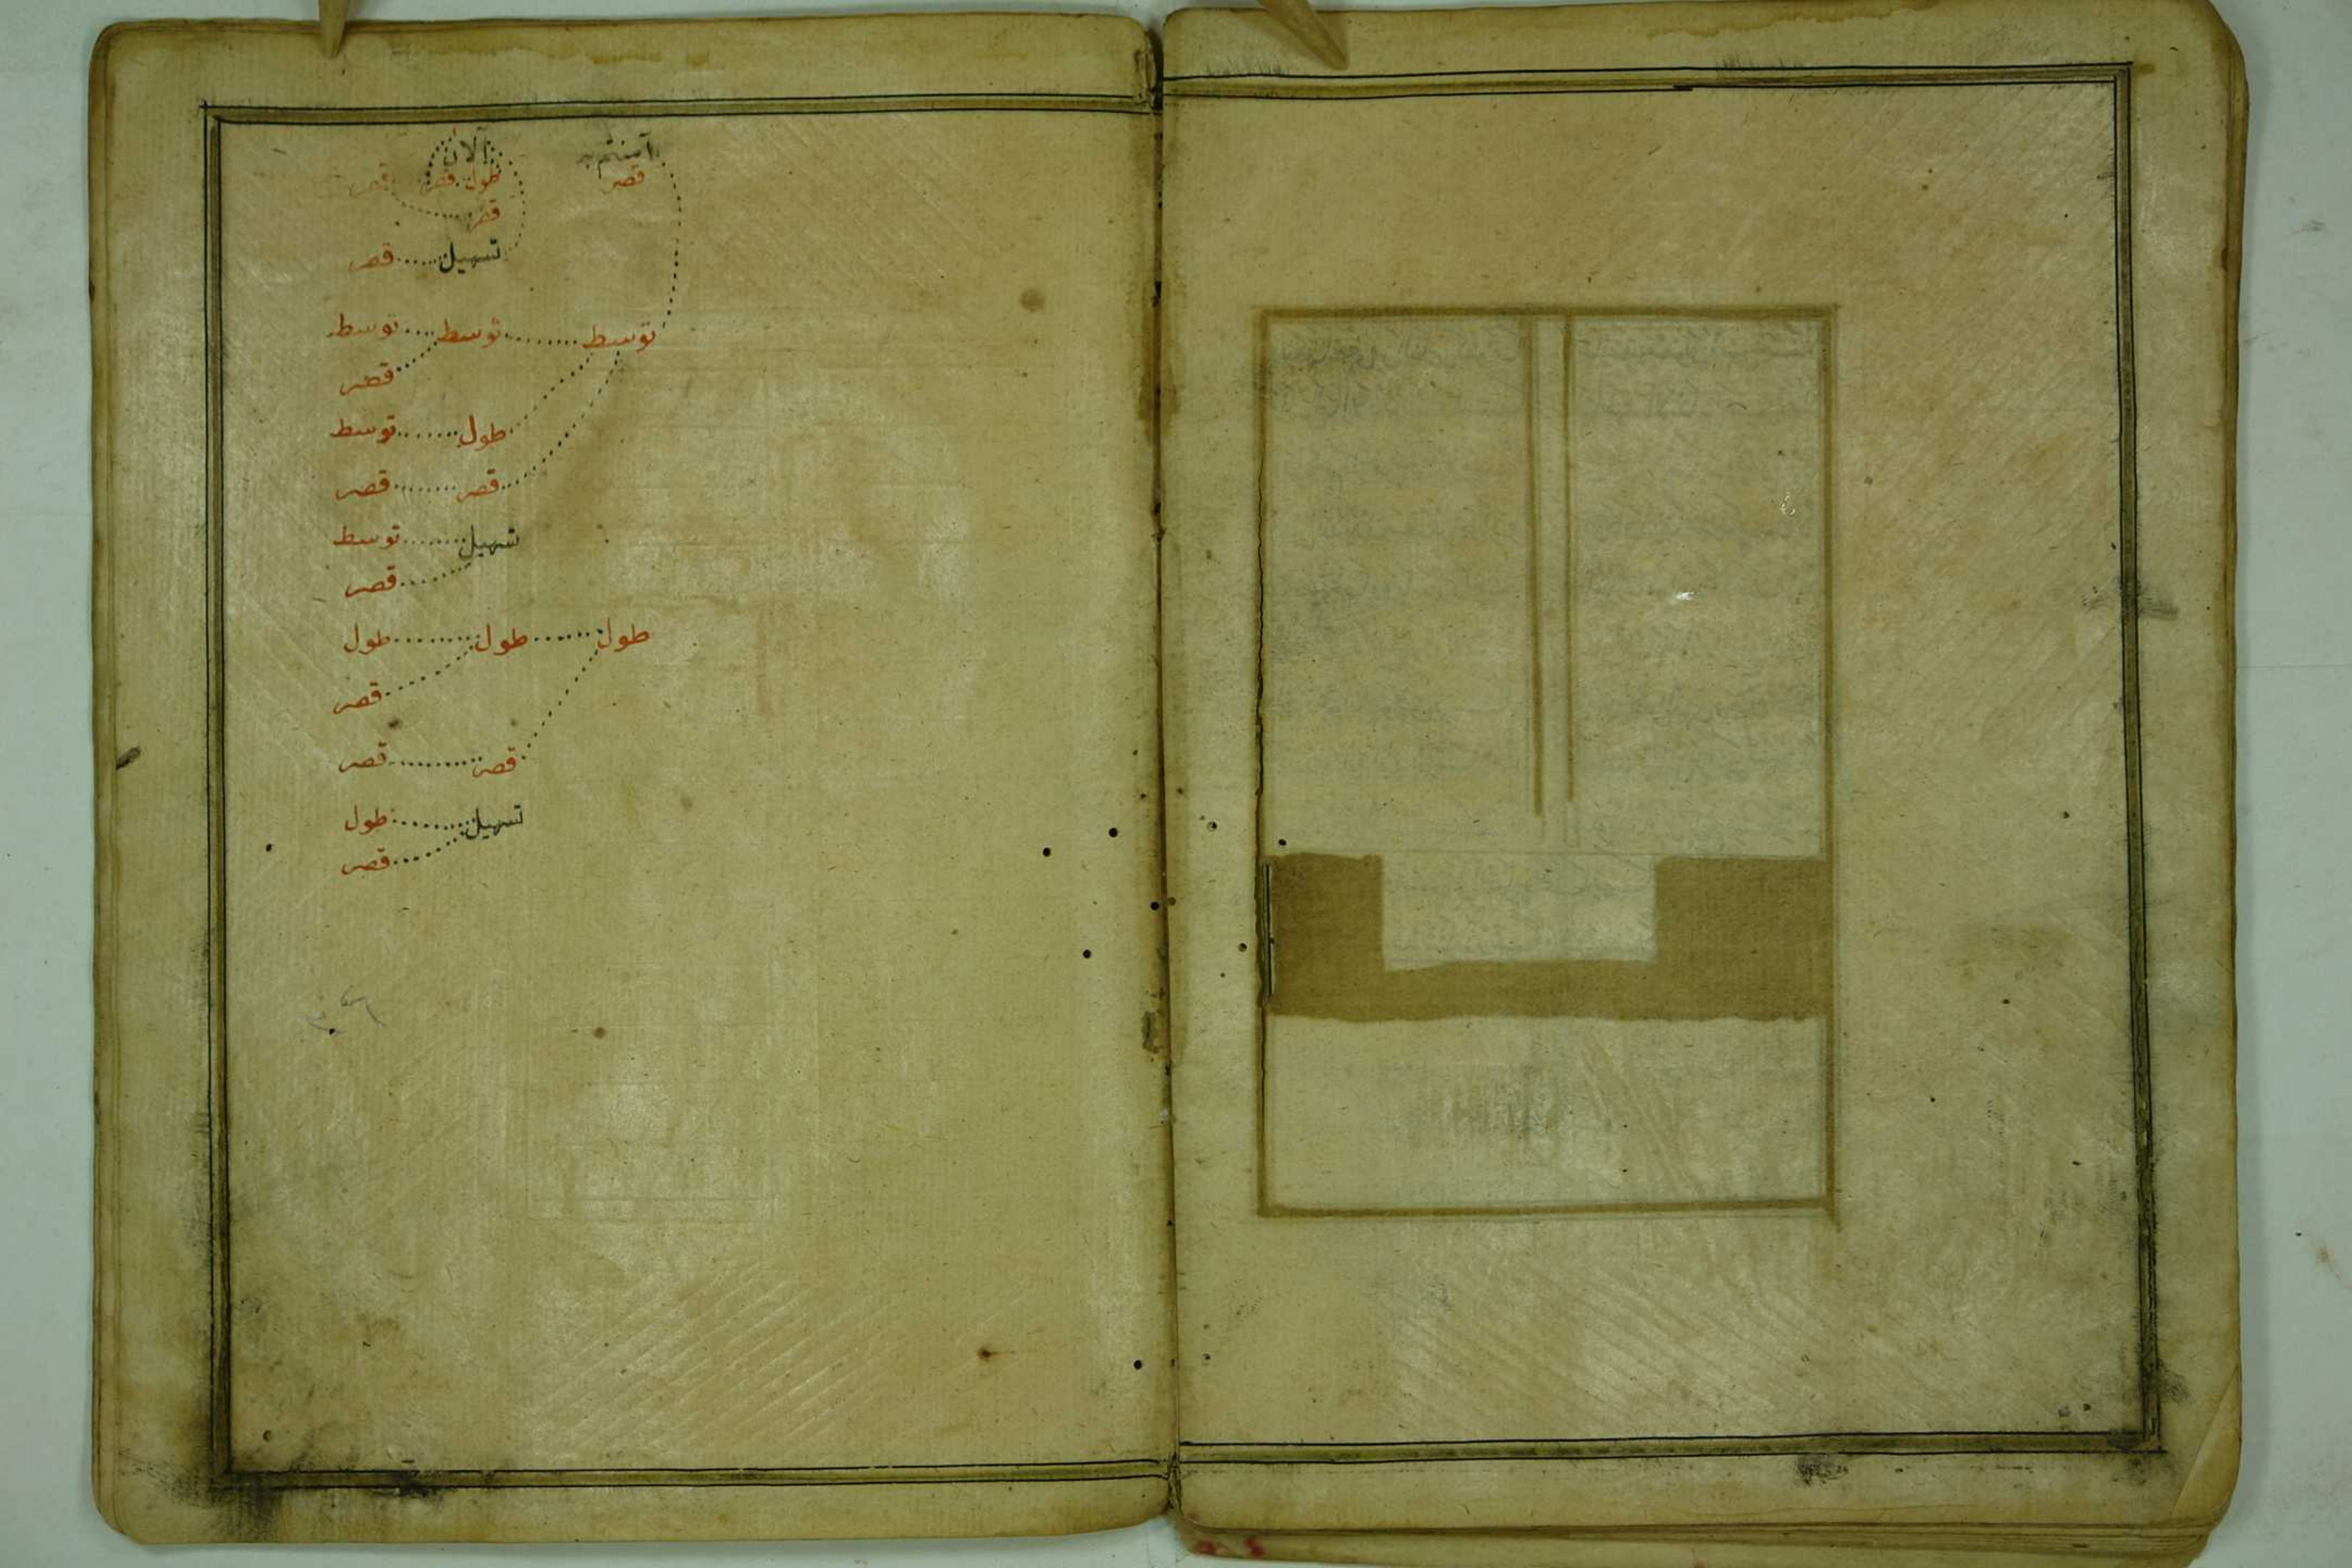 آمنتم به آلآن
قصر طول قصر قصر
قصر
تسهيل قصر
توسط توسط توسط
قصر
طول توسط
قصر قصر
تسهيل توسط
قصر
طول طول طول
قصر
قصر قصر
تسهيل طول
قصر